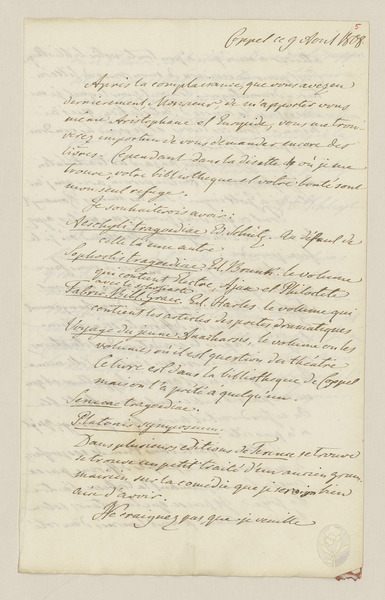 5
Coppet ce 9 Aout 1808.
Après la complaisance que vous avez eu
dernierement, Monsieur, de m'apporter vous
même Aristophane et Euripide, vous me trou-
verez importun de vous demander encore des
livres. Cependant dans la disette où je me
trouve, votre bibliotheque et votre bonté sont
mon seul refuge.
Je souhaiterois avoir:
Aeschyli tragoediae Ed. Schütz. Au défaut de
celle là une autre.
Sophoclis tragoediae Ed. Brunk. le volume
qui contient Electre, Ajax et Philoctete
avec les scholiastes
Fabric. Bibl. graec. Ed. Harles le volume qui
contient les articles des poetes dramatiques
Voyage du jeune Anacharsis, le volume ou les
volumes où il est question du théatre
Ce livre est dans la bibliotheque de Coppet
mais on l'a prété à quelqu'un.
Senecae tragoediae.
Platonis Symposium.
Dans plusieurs editions de Terence se trouve
se trouve un petit traité d'un ancien gram-
mairien sur la comedie que je serois bien
aise d'avoir.
Ne craignez pas que je veuille